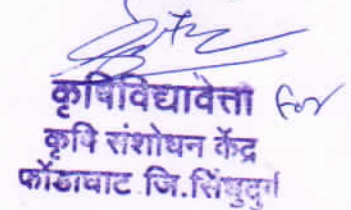 कृषिविद्यावेत्ता for
कृषि संशोधन केंद्र
फोंडाघाट जि.सिंधुदुर्ग